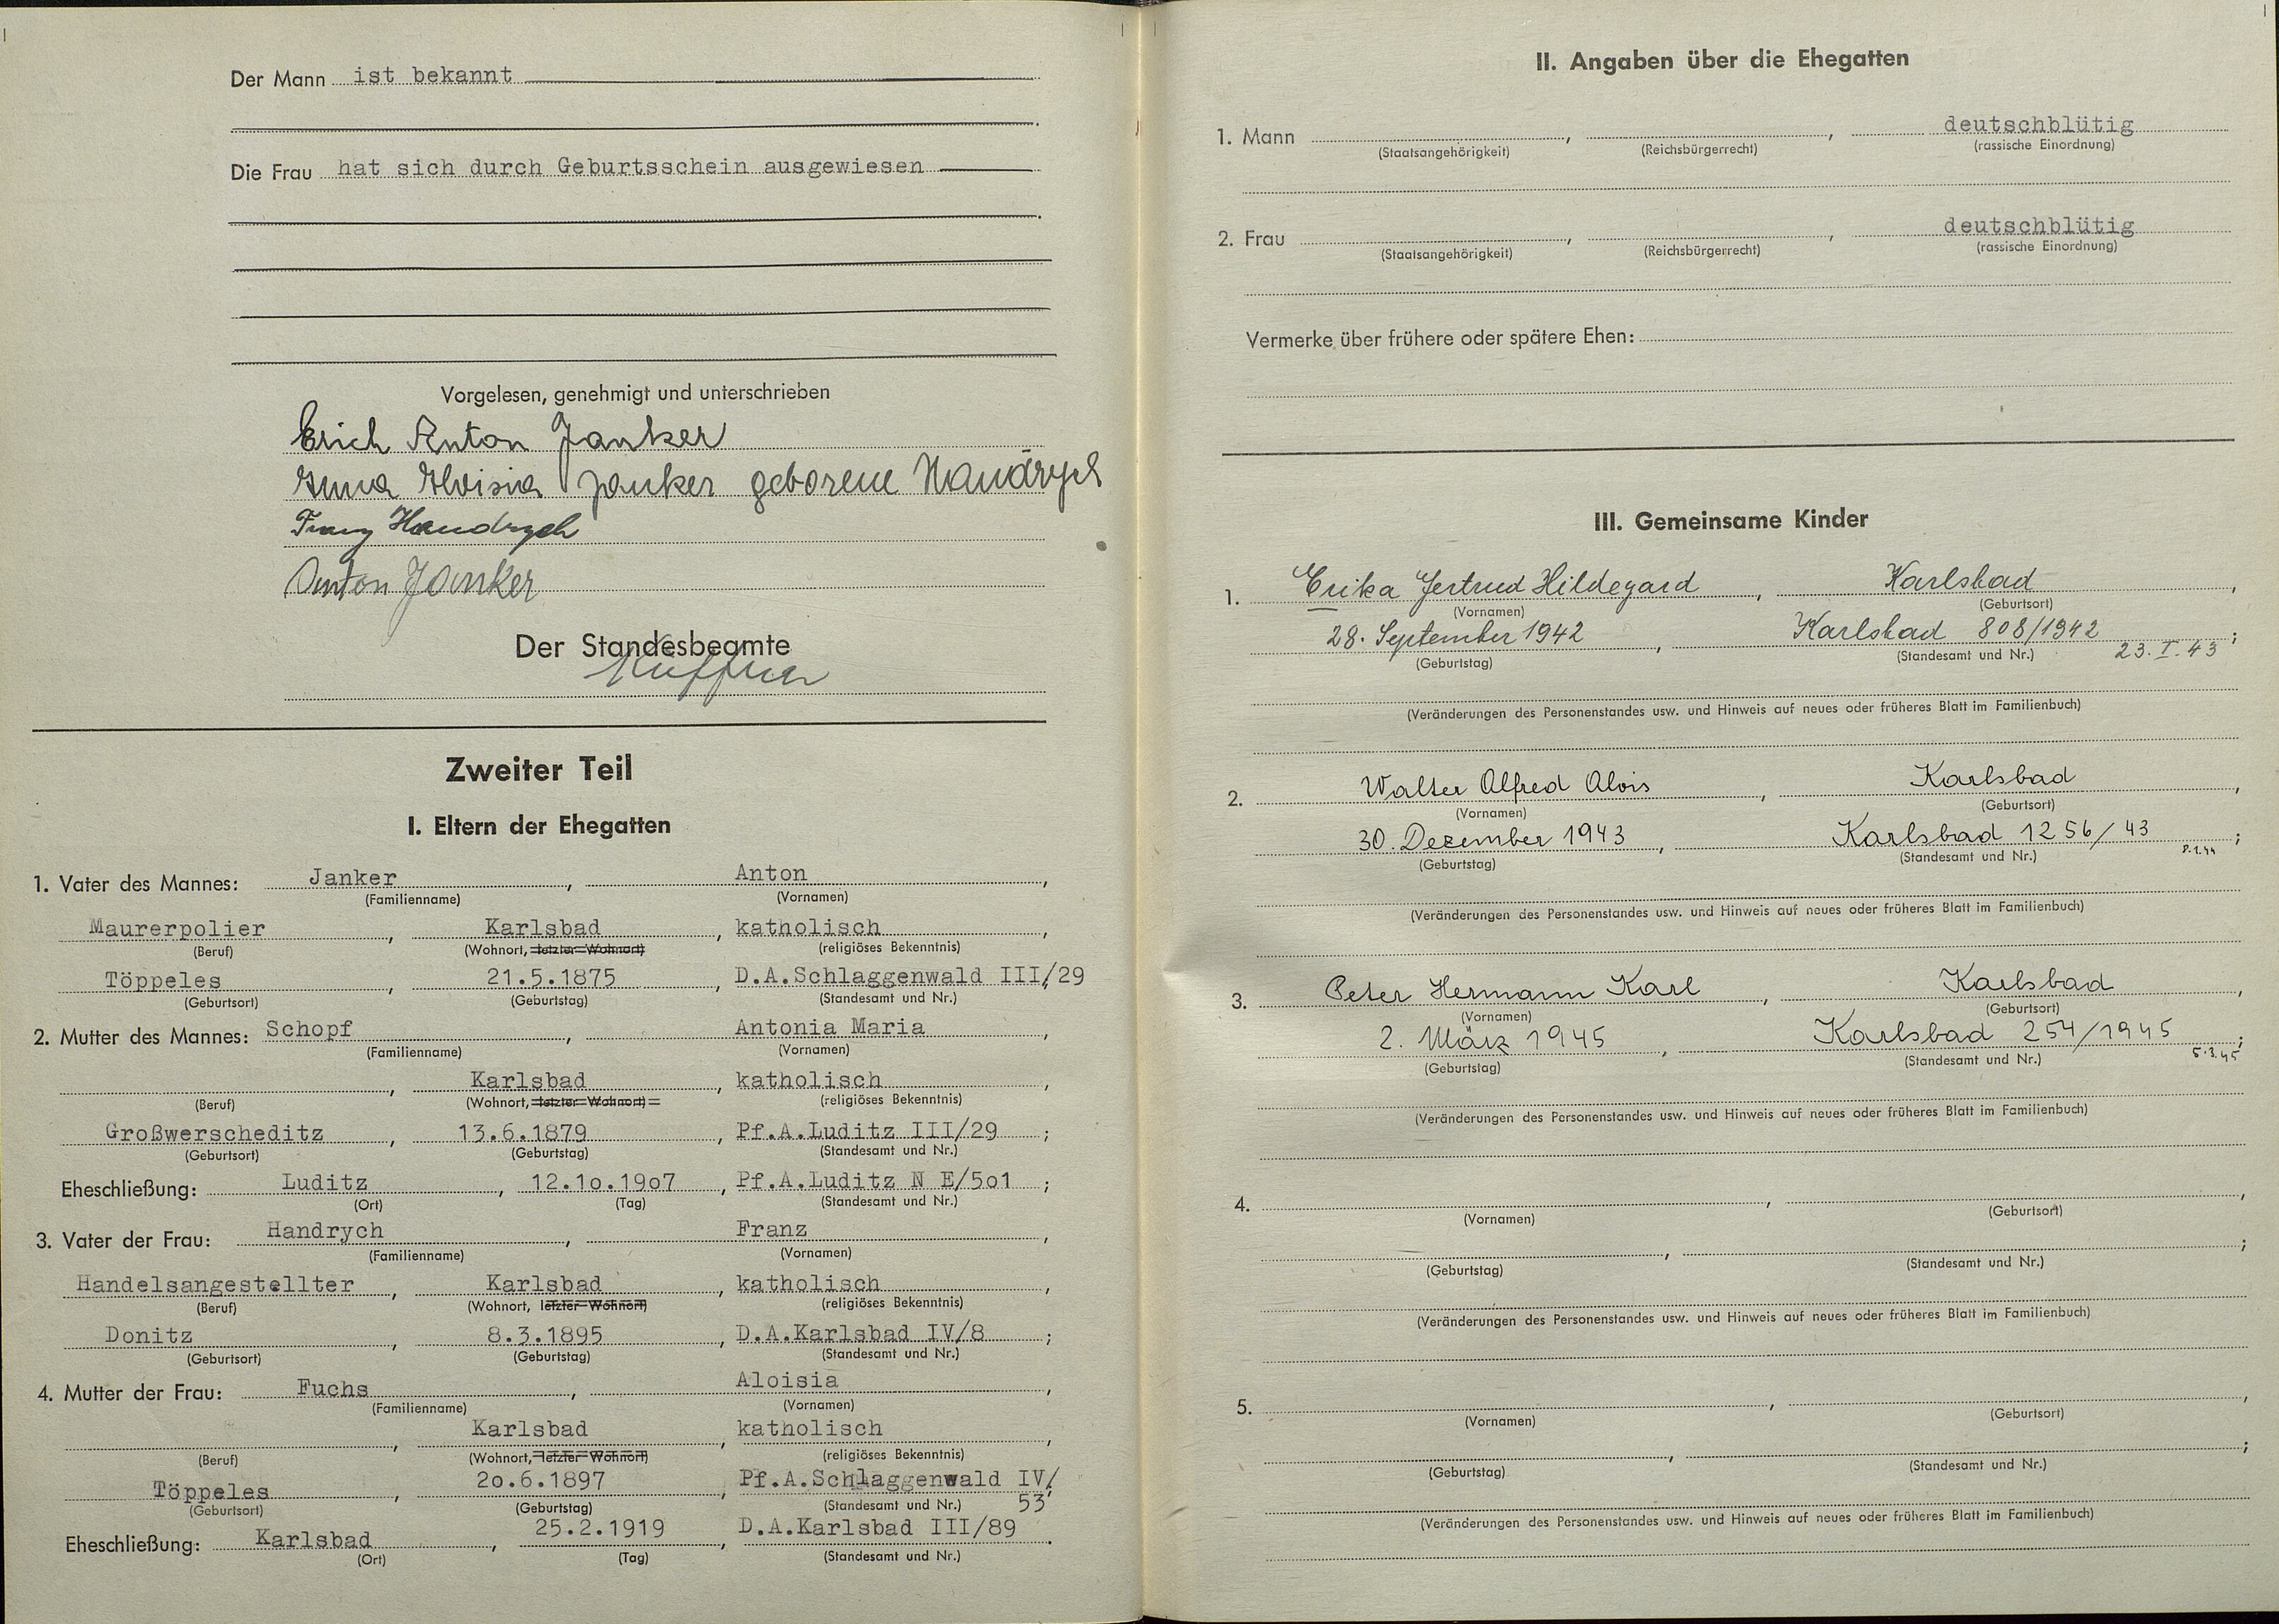 Der Mann ist bekannt
Die Frau hat sich durch Geburtsschein ausgewiesen
Vorgelesen, genehmigt und unterschrieben
Erich Anton Janker
Anna Aloisia Janker geborene Handrych
Franz Handrych
Anton Janker
Der Standesbeamte
Küffner
Zweiter Teil
I. Eltern der Ehegatten
1. Vater des Mannes: Janker, Anton,
(Familienname) (Vornamen)
Maurerpolier, Karlsbad, katholisch,
(Beruf) (Wohnort, letzter Wohnort) (religiöses Bekenntnis)
Töppeles, 21.5.1875, D.A.Schlaggenwald III/29;
(Geburtsort) (Geburtstag) (Standesamt und Nr.)
2. Mutter des Mannes: Schopf, Antonia Maria,
(Familienname) (Vornamen)
, Karlsbad, katholisch,
(Beruf) (Wohnort, letzter Wohnort) (religiöses Bekenntnis)
Großwerscheditz, 13.6.1879, Pf.A.Luditz III/29;
(Geburtsort) (Geburtstag) (Standesamt und Nr.)
Eheschließung: Luditz, 12.1o.19o7, Pf.A.Luditz N E/5o1;
(Ort) (Tag) (Standesamt und Nr.)
3. Vater der Frau: Handrych, Franz,
(Familienname) (Vornamen)
Handelsangestellter, Karlsbad, katholisch,
(Beruf) (Wohnort, letzter Wohnort) (religiöses Bekenntnis)
Donitz, 8.3.1895, D.A.Karlsbad IV/8;
(Geburtsort) (Geburtstag) (Standesamt und Nr.)
4. Mutter der Frau: Fuchs, Aloisia,
(Familienname) (Vornamen)
, Karlsbad, katholisch,
(Beruf) (Wohnort, letzter Wohnort) (religiöses Bekenntnis)
Töppeles, 2o.6.1897, Pf.A.Schlaggenwald IV/
(Geburtsort) (Geburtstag) (Standesamt und Nr.) 53;
Eheschließung: Karlsbad, 25.2.1919, D.A.Karlsbad III/89.
(Ort) (Tag) (Standesamt und Nr.)
II. Angaben über die Ehegatten
1. Mann , , deutschblütig
(Staatsangehörigkeit) (Reichsbürgerrecht) (rassische Einordnung)
2. Frau , , deutschblütig
(Staatsangehörigkeit) (Reichsbürgerrecht) (rassische Einordnung)
Vermerke über frühere oder spätere Ehen:
III. Gemeinsame Kinder
1. Erika Gertrud Hildegard, Karlsbad,
(Vornamen) (Geburtsort)
28. September 1942, Karlsbad 808/1942;
(Geburtstag) (Standesamt und Nr.) 23.I.43
(Veränderungen des Personenstandes usw. und Hinweis auf neues oder früheres Blatt im Familienbuch)
2. Walter Alfred Alois, Karlsbad,
(Vornamen) (Geburtsort)
30. Dezember 1943, Karlsbad 1256/43;
(Geburtstag) (Standesamt und Nr.) 8.1.44
(Veränderungen des Personenstandes usw. und Hinweis auf neues oder früheres Blatt im Familienbuch)
3. Peter Hermann Karl, Karlsbad,
(Vornamen) (Geburtsort)
2. März 1945, Karlsbad 254/1945;
(Geburtstag) (Standesamt und Nr.) 5.3.45
(Veränderungen des Personenstandes usw. und Hinweis auf neues oder früheres Blatt im Familienbuch)
4. , ,
(Vornamen) (Geburtsort)
, ;
(Geburtstag) (Standesamt und Nr.)
(Veränderungen des Personenstandes usw. und Hinweis auf neues oder früheres Blatt im Familienbuch)
5. , ,
(Vornamen) (Geburtsort)
, ;
(Geburtstag) (Standesamt und Nr.)
(Veränderungen des Personenstandes usw. und Hinweis auf neues oder früheres Blatt im Familienbuch)